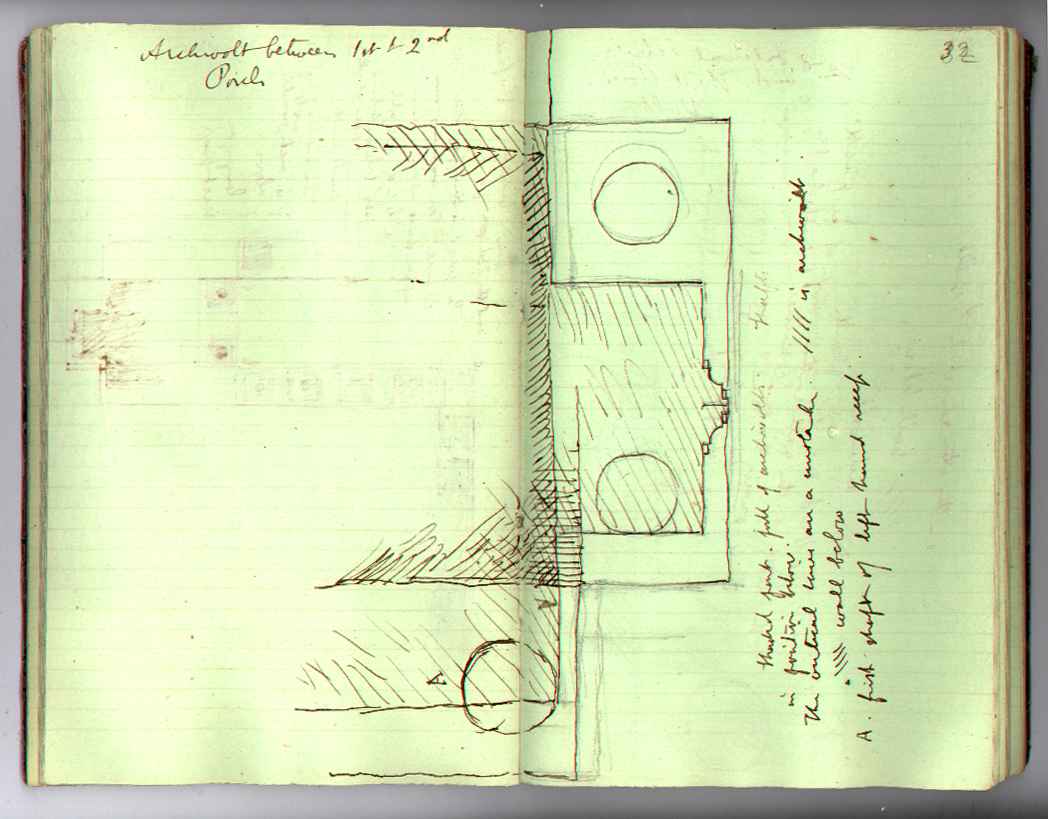 Archivolt between 1st & 2nd
Porch
32
Shaded part. full of archivolts. 
in position below.
The vertical lines are a mistake. //// is archivolt
\\\\ wall below
A. first shaft of left hand recess.
A